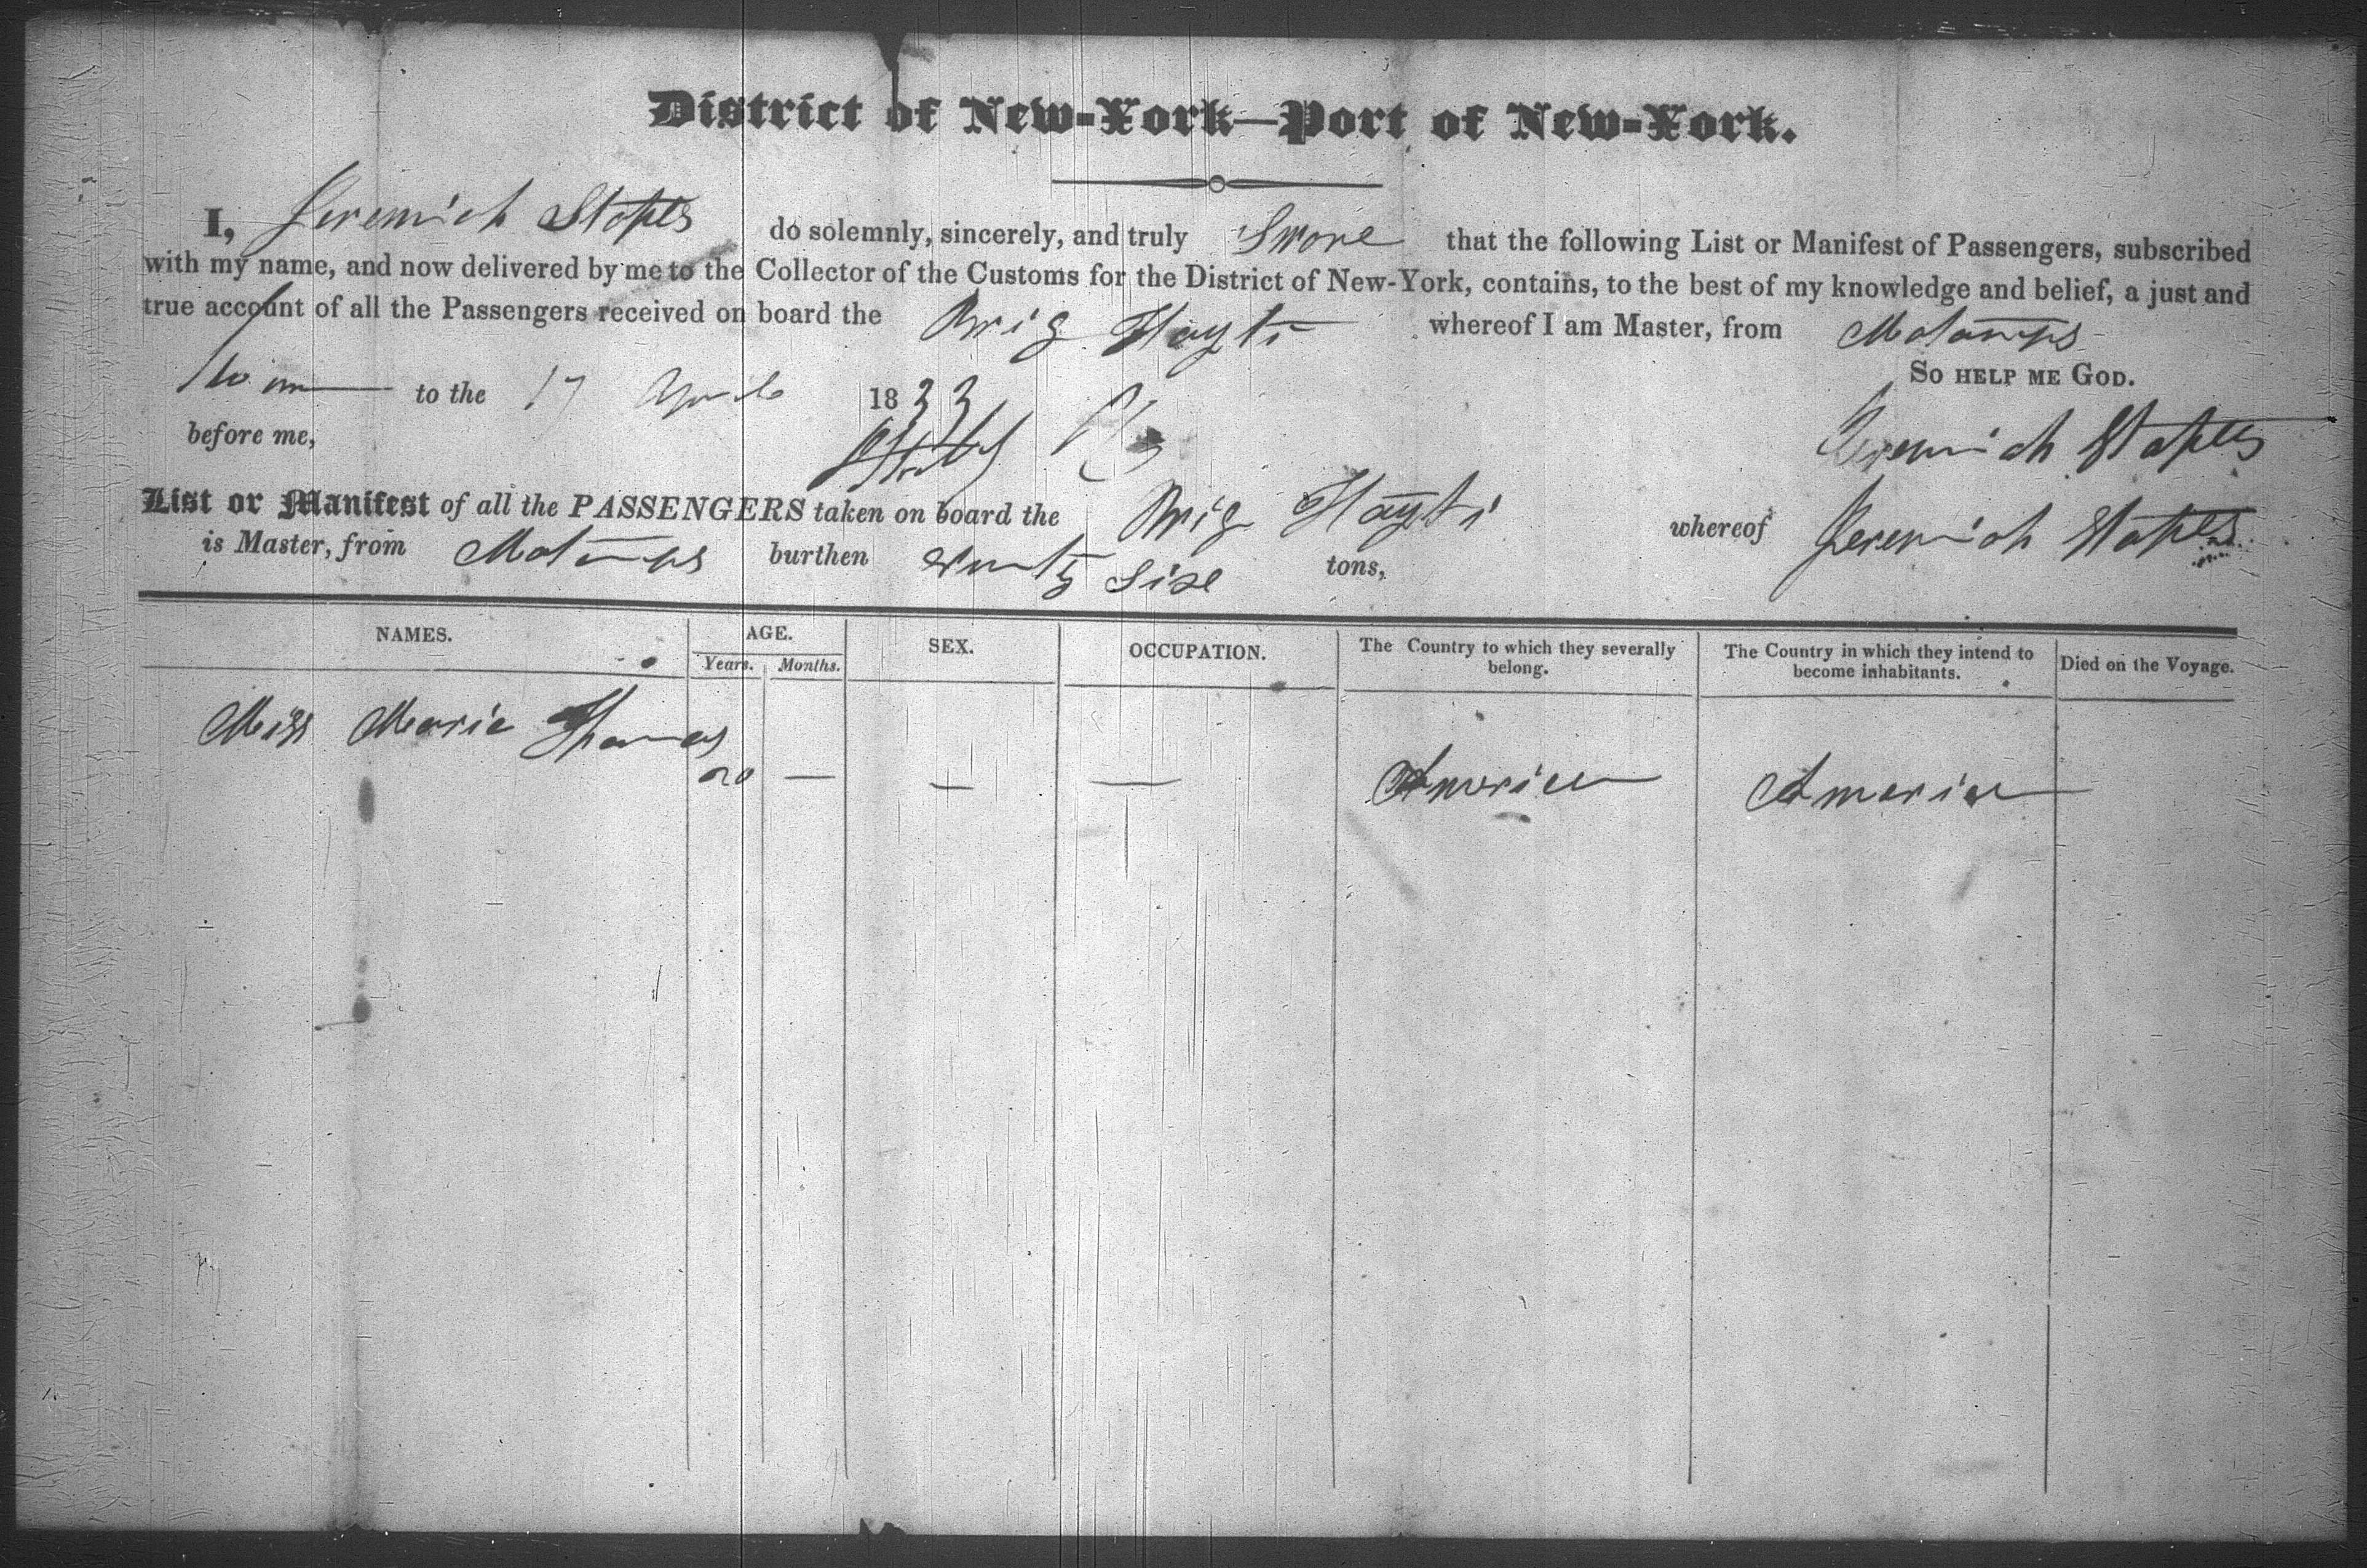 District of New-York—Port of New-York.
I, Jeremiah Staples do solemnly, sincerely, and truly Swore that the following List or Manifest of Passengers, subscribed
with my name, and now delivered by me to the Collector of the Customs for the District of New-York, contains, to the best of my knowledge and belief, a just and
true account of all the Passengers received on board the Brig Hayti whereof I am Master, from
So HELP ME GOD.
to the 17 April 1833
before me, Jeremiah Staples
List or Manifest of all the PASSENGERS taken on board the Brig Hayti whereof Jeremiah Staples
is Master, from burthen tons,
NAMES. AGE. SEX. OCCUPATION. The Country to which they severally belong. The Country in which they intend to become inhabitants. Died on the Voyage.
Years. Months.
Miss Maria Thomas
20 — — — America America